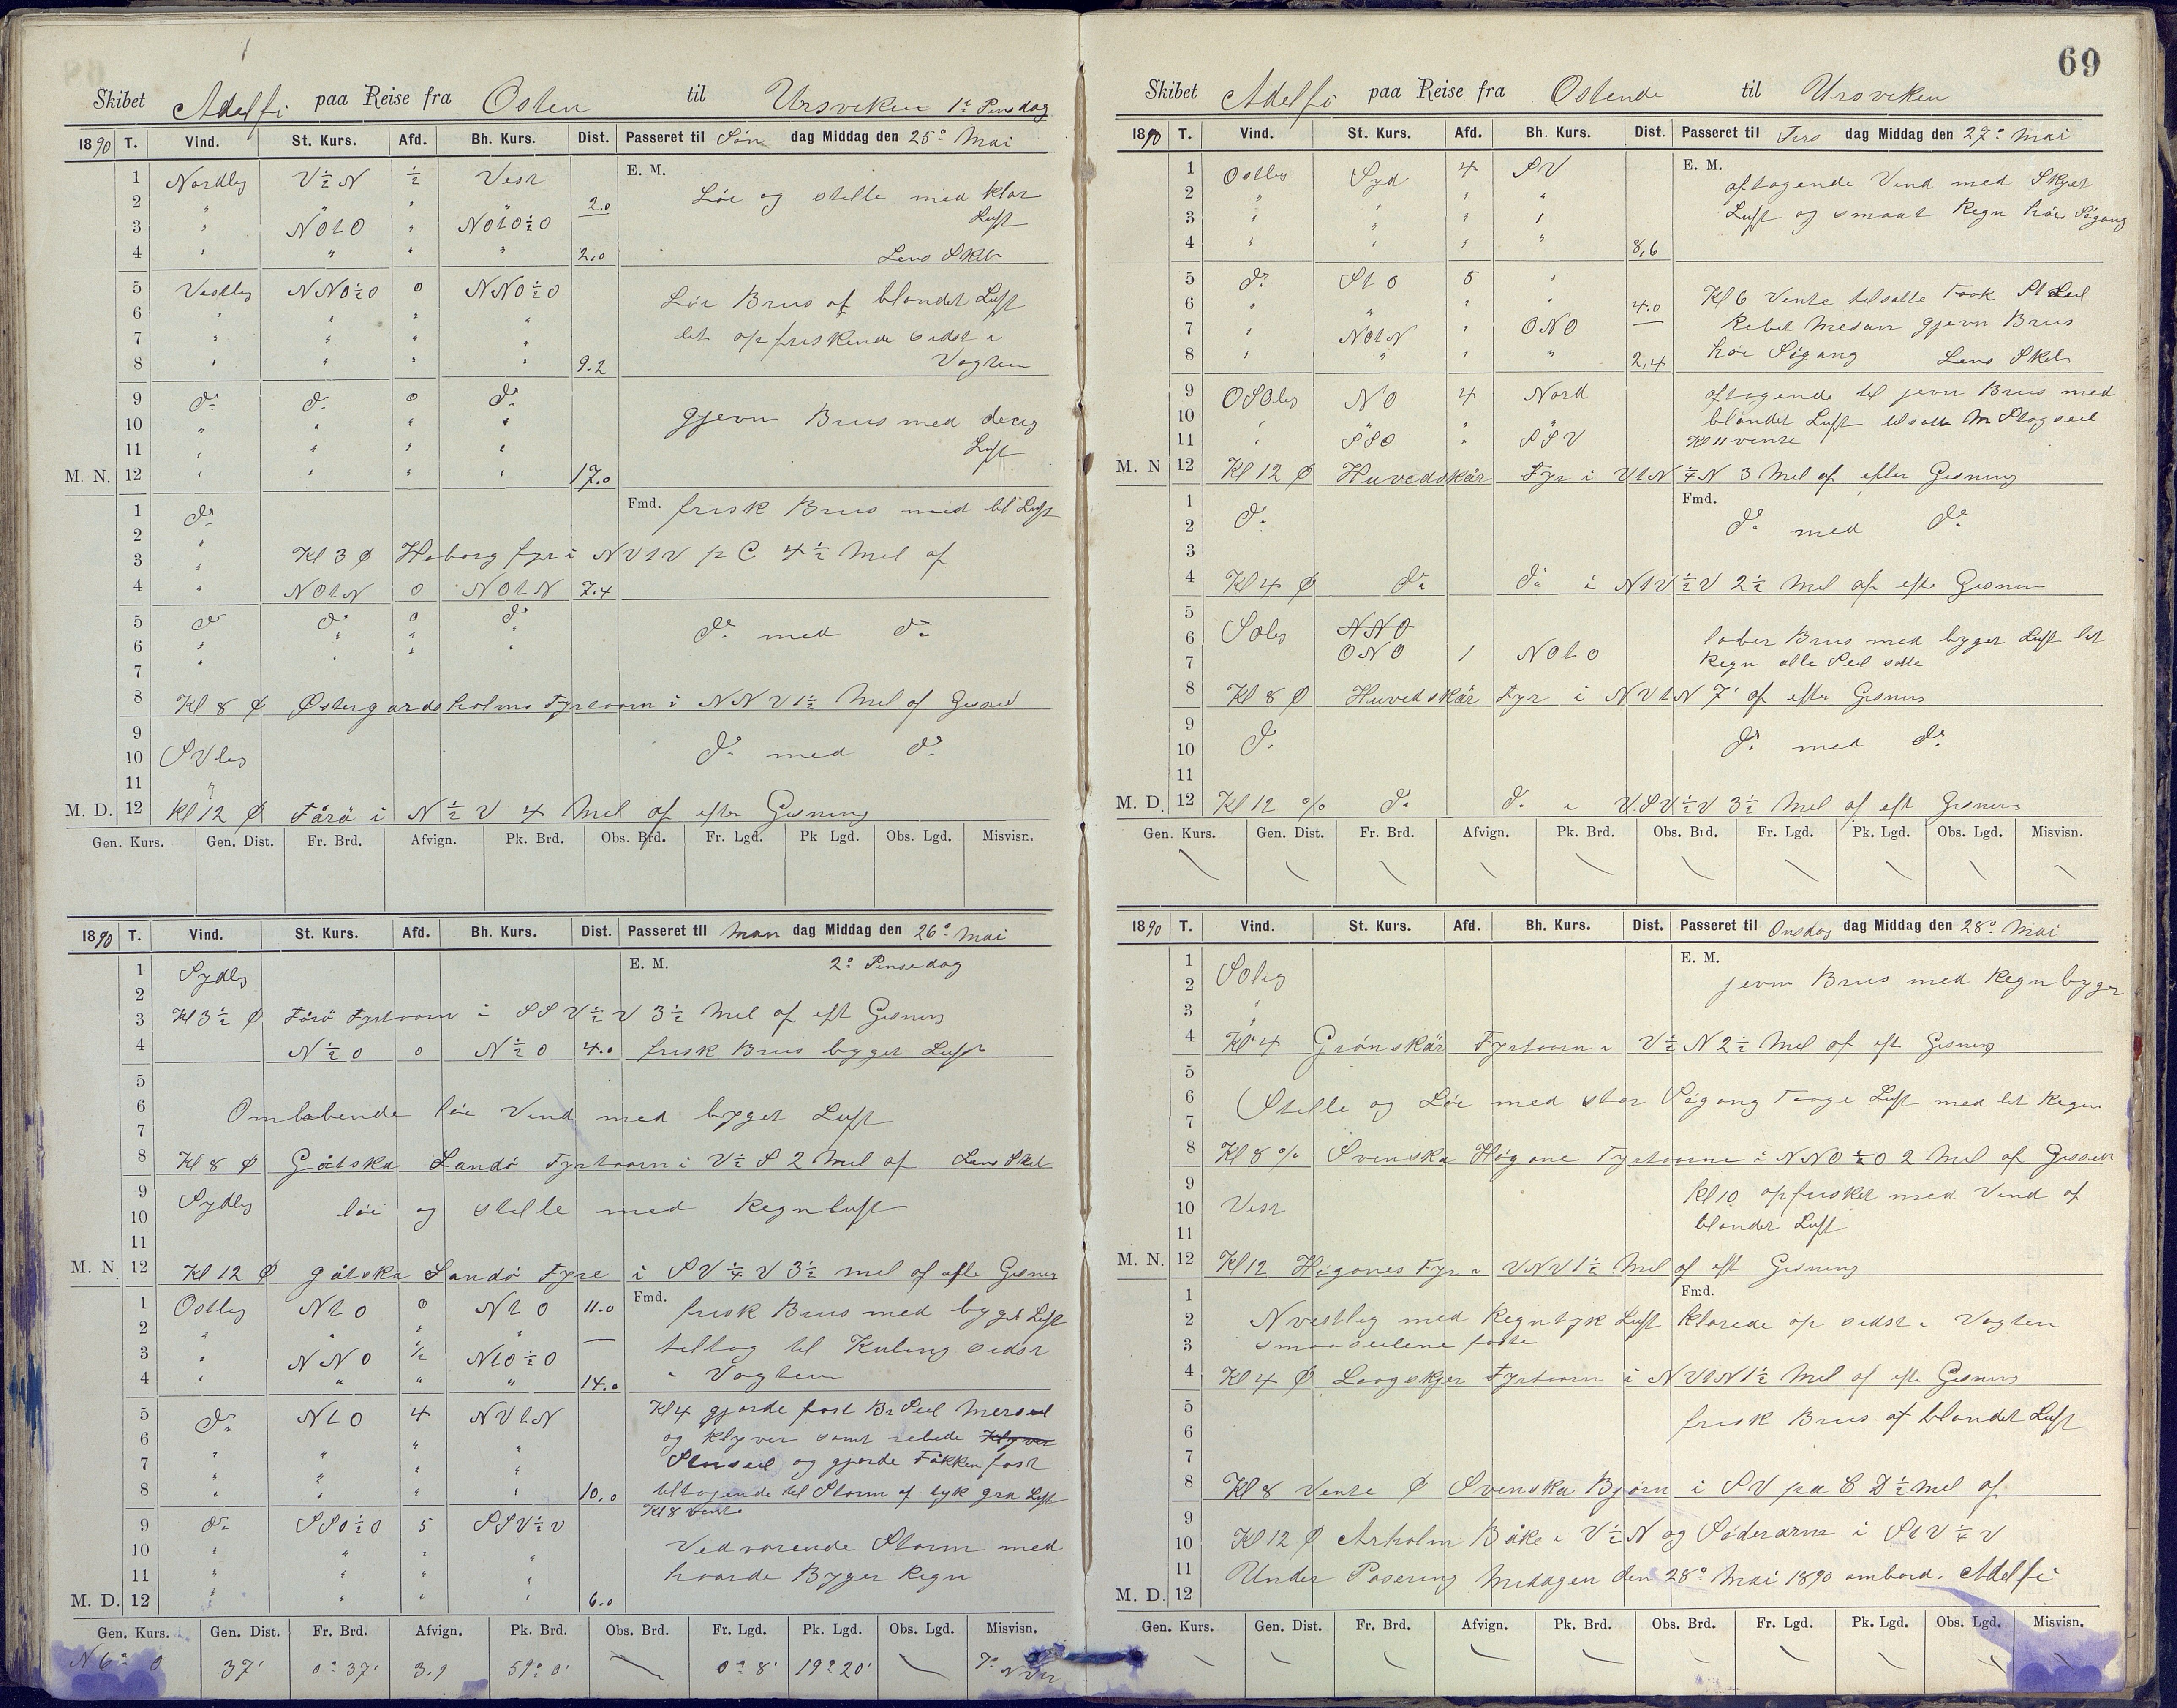 Skibet Adelfi paa Reise fra Osten til Ursviken 1ᵉ Pinsdag
1890 T. Vind. St. Kurs. Afd. Bh. Kurs. Dist. Passeret til Søn dag Middag den 25º Mai
1 Nordlig V½N ½ Vest E. M.
2 " " " " 2.0 Løi og stille med klar
3 " NOtO " NOtO½O Luft
4 " " " " 2.0 Lens Skib
5 Vestlig NNO½O 0 NNO½O Løi Bris af blandet Luft
6 " " " "
7 " " " " let opfriskende sidst i
8 " " " " 9.2 Vagten
9 dº dº 0 dº
10 " " " " gjevn Bris med deiig
11 " " " " Luft
M. N. 12 " " " " 17.0
1 dº Fmd. frisk Bris med bl Luft
2 "
3 " Kl 3 Ø Hoborg fyr i NVtV p C 4½ Mil af
4 " NOtN 0 NOtN 7.4
5 dº dº 0 dº dº med dº
6 " " " "
7 " " "
8 Kl 8 Ø Østergardsholms Fyrtaarn i NNV 1½ Mil af Gissed
9
10 SVlig dº med dº
11 "
M. D. 12 Kl 12 Ø Fårö i N½V 4 Mil af efter Gisning
Gen. Kurs. Gen. Dist. Fr. Brd. Afvign. Pk. Brd. Obs. Brd. Fr. Lgd. Pk Lgd. Obs. Lgd. Misvisn.
1890 T. Vind. St. Kurs. Afd. Bh. Kurs. Dist. Passeret til Man dag Middag den 26º Mai
1 Sydlig E. M. 2º Pinsedag
2
3 Kl 3½ Ø Fårö Fyrtaarn i SSV½V 3½ Mil af eft Gisning
4 N½O 0 N½O 4.0 frisk Bris byget Luft
5
6 Omløbende løi Vind med byget Luft
7
8 Kl 8 Ø Götska Sandö Fyrtaarn i V½S 2 Mil af Lens Skib
9 Sydlig løi og stille med Regnluft
10
11
M. N 12 Kl 12 Ø Götska Sandö Fyre i SV¼V 3½ mil af efte Gisning
1 Ostlig NtO 0 NtO 11.0 Fmd. frisk Bris med byget Luft
2 " " " "
3 " NNO ½ NtO½O tiltog til Kuling sidst
4 " " " " 14.0 i Vagten
5 dº NtO 4 NVtN Kl 4 gjorde fast Br Seil Merseil
6 " " " og Klyver samt rebede Klyver
7 " " " " Storseil og gjorde Fåkken fast
8 " " " " 10.0 tiltagende til Storm af tyk graa Luft
Kl 8 vente
9 dº SSO½O 5 SSV½V
10 " " " " Vedvarende Storm med
11 " " " " haarde Byger Regn
M. D. 12 " " " " 6.0
Gen. Kurs. Gen. Dist. Fr. Brd. Afvign. Pk. Brd. Obs. Brd. Fr. Lgd. Pk. Lgd. Obs. Lgd. Misvisn.
N 6º O 37' 0º 37' 3.9 59º 0' 0º 8' 19º 20' 7º
69
Skibet Adelfi paa Reise fra Ostende til Ursviken
1890 T. Vind. St. Kurs. Afd. Bh. Kurs. Dist. Passeret til Tirs dag Middag den 27º Mai
1 Ostlig Syd 4 SV E. M.
2 " " " " aftagende Vind med Skyet
3 " " " " Luft og smaat Regn høi Søgang
4 " " " " 8,6
5 dº StO 5 "
6 " " " " 4.0 Kl 6 vente tilsatte Fok StSeil
7 " NOtN " ONO Rebet Mesan gjevn Bris
8 " " " " 2,4 høi Søgang Lens Skib
9 OSOlig NO 4 Nord aftagende til jevn Bris med
10 " " " " blandet Luft tilsatte M Stagseil
11 " SSO " SSV Kl 11 vente
M. N 12 Kl 12 Ø Huvedskär Fyr i VtN¼N 3 Mil af efter Gisning
1 Fmd.
2 dº dº med dº
3
4 Kl 4 Ø dº dº i NtV½V 2½ Mil af efte Gisnin
5
6 SOlig NNO laber Bris med byget Luft let
7 ONO 1 NOtO Regn alle Seil satte
8 Kl 8 Ø Huvedskär Fyr i NVtN 7' af efter Gisning
9
10 dº dº med dº
11
M. D. 12 Kl 12 % dº dº i VSV½V 3½ Mil af eft Gisning
Gen. Kurs. Gen. Dist. Fr. Brd. Afvign. Pk. Brd. Obs. Brd. Fr. Lgd. Pk. Lgd. Obs. Lgd. Misvisn.
1890 T. Vind. St. Kurs. Afd. Bh. Kurs. Dist. Passeret til Onsdag dag Middag den 28º Mai
1 E. M.
2 SOlig jevn Bris med Regnbyger
3 "
4 Kl 4 Grönskär Fyrtaarn i V½N 2½ Mil af eft Gisning
5
6 Stille og Løi med stor Søgang Taage Luft med let Regn
7
8 Kl 8 % Svenska Høgarne Fyrtaarne i NNO½O 2 Mil af Gissed
9 Kl 10 opfrisket med Vind af
10 Vest blandet Luft
11
M. N. 12 Kl 12 Høgones Fyr i VNV 1½ Mil af eft Gisning
1 Fmd.
2 Nvestlig med Regntyk Luft klarede op sidst i Vagten
3 smaaseilene faste
4 Kl 4 Ø Laagskjer Fyrtaarn i NVtN 1½ Mil af efte Gisning
5 frisk Bris af blandet Luft
6
7
8 Kl 8 vente Ø Svenska Bjørn i SV pa C D ½ mil af
9
10 Kl 12 Ø Arholm Båke i V½N og Söderarm i StV¼V
11 Under Pasering Midagen den 28º Mai 1890 ombord. Adelfi
M. D. 12
Gen. Kurs. Gen. Dist. Fr. Brd. Afvign. Pk. Brd. Obs. Brd. Fr. Lgd. Pk. Lgd. Obs. Lgd. Misvisn.